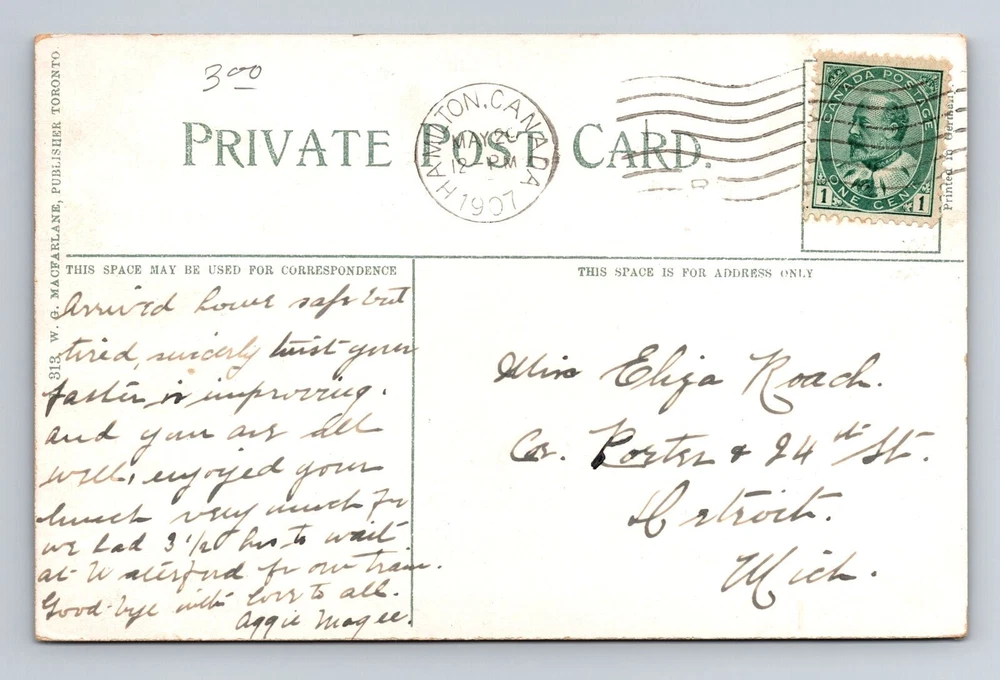 3 00
PRIVATE POST CARD.
HAMILTON, CANADA
MAY 20
12 PM
1907
CANADA POSTAGE
1 ONE CENT 1
Printed in Germany
313. W. G. MACFARLANE, PUBLISHER TORONTO
THIS SPACE MAY BE USED FOR CORRESPONDENCE
THIS SPACE IS FOR ADDRESS ONLY
Arrived home safe but
tired, sincerly trust your
faster is improving.
and you are all
well, enjoyed your
lunch very much for
we had 3 1/2 hrs to wait
at Waterford for our train.
Good-bye with love to all.
Aggie Magee.
Miss Eliza Roach.
Cor. Porter & 24th St.
Detroit.
Mich.